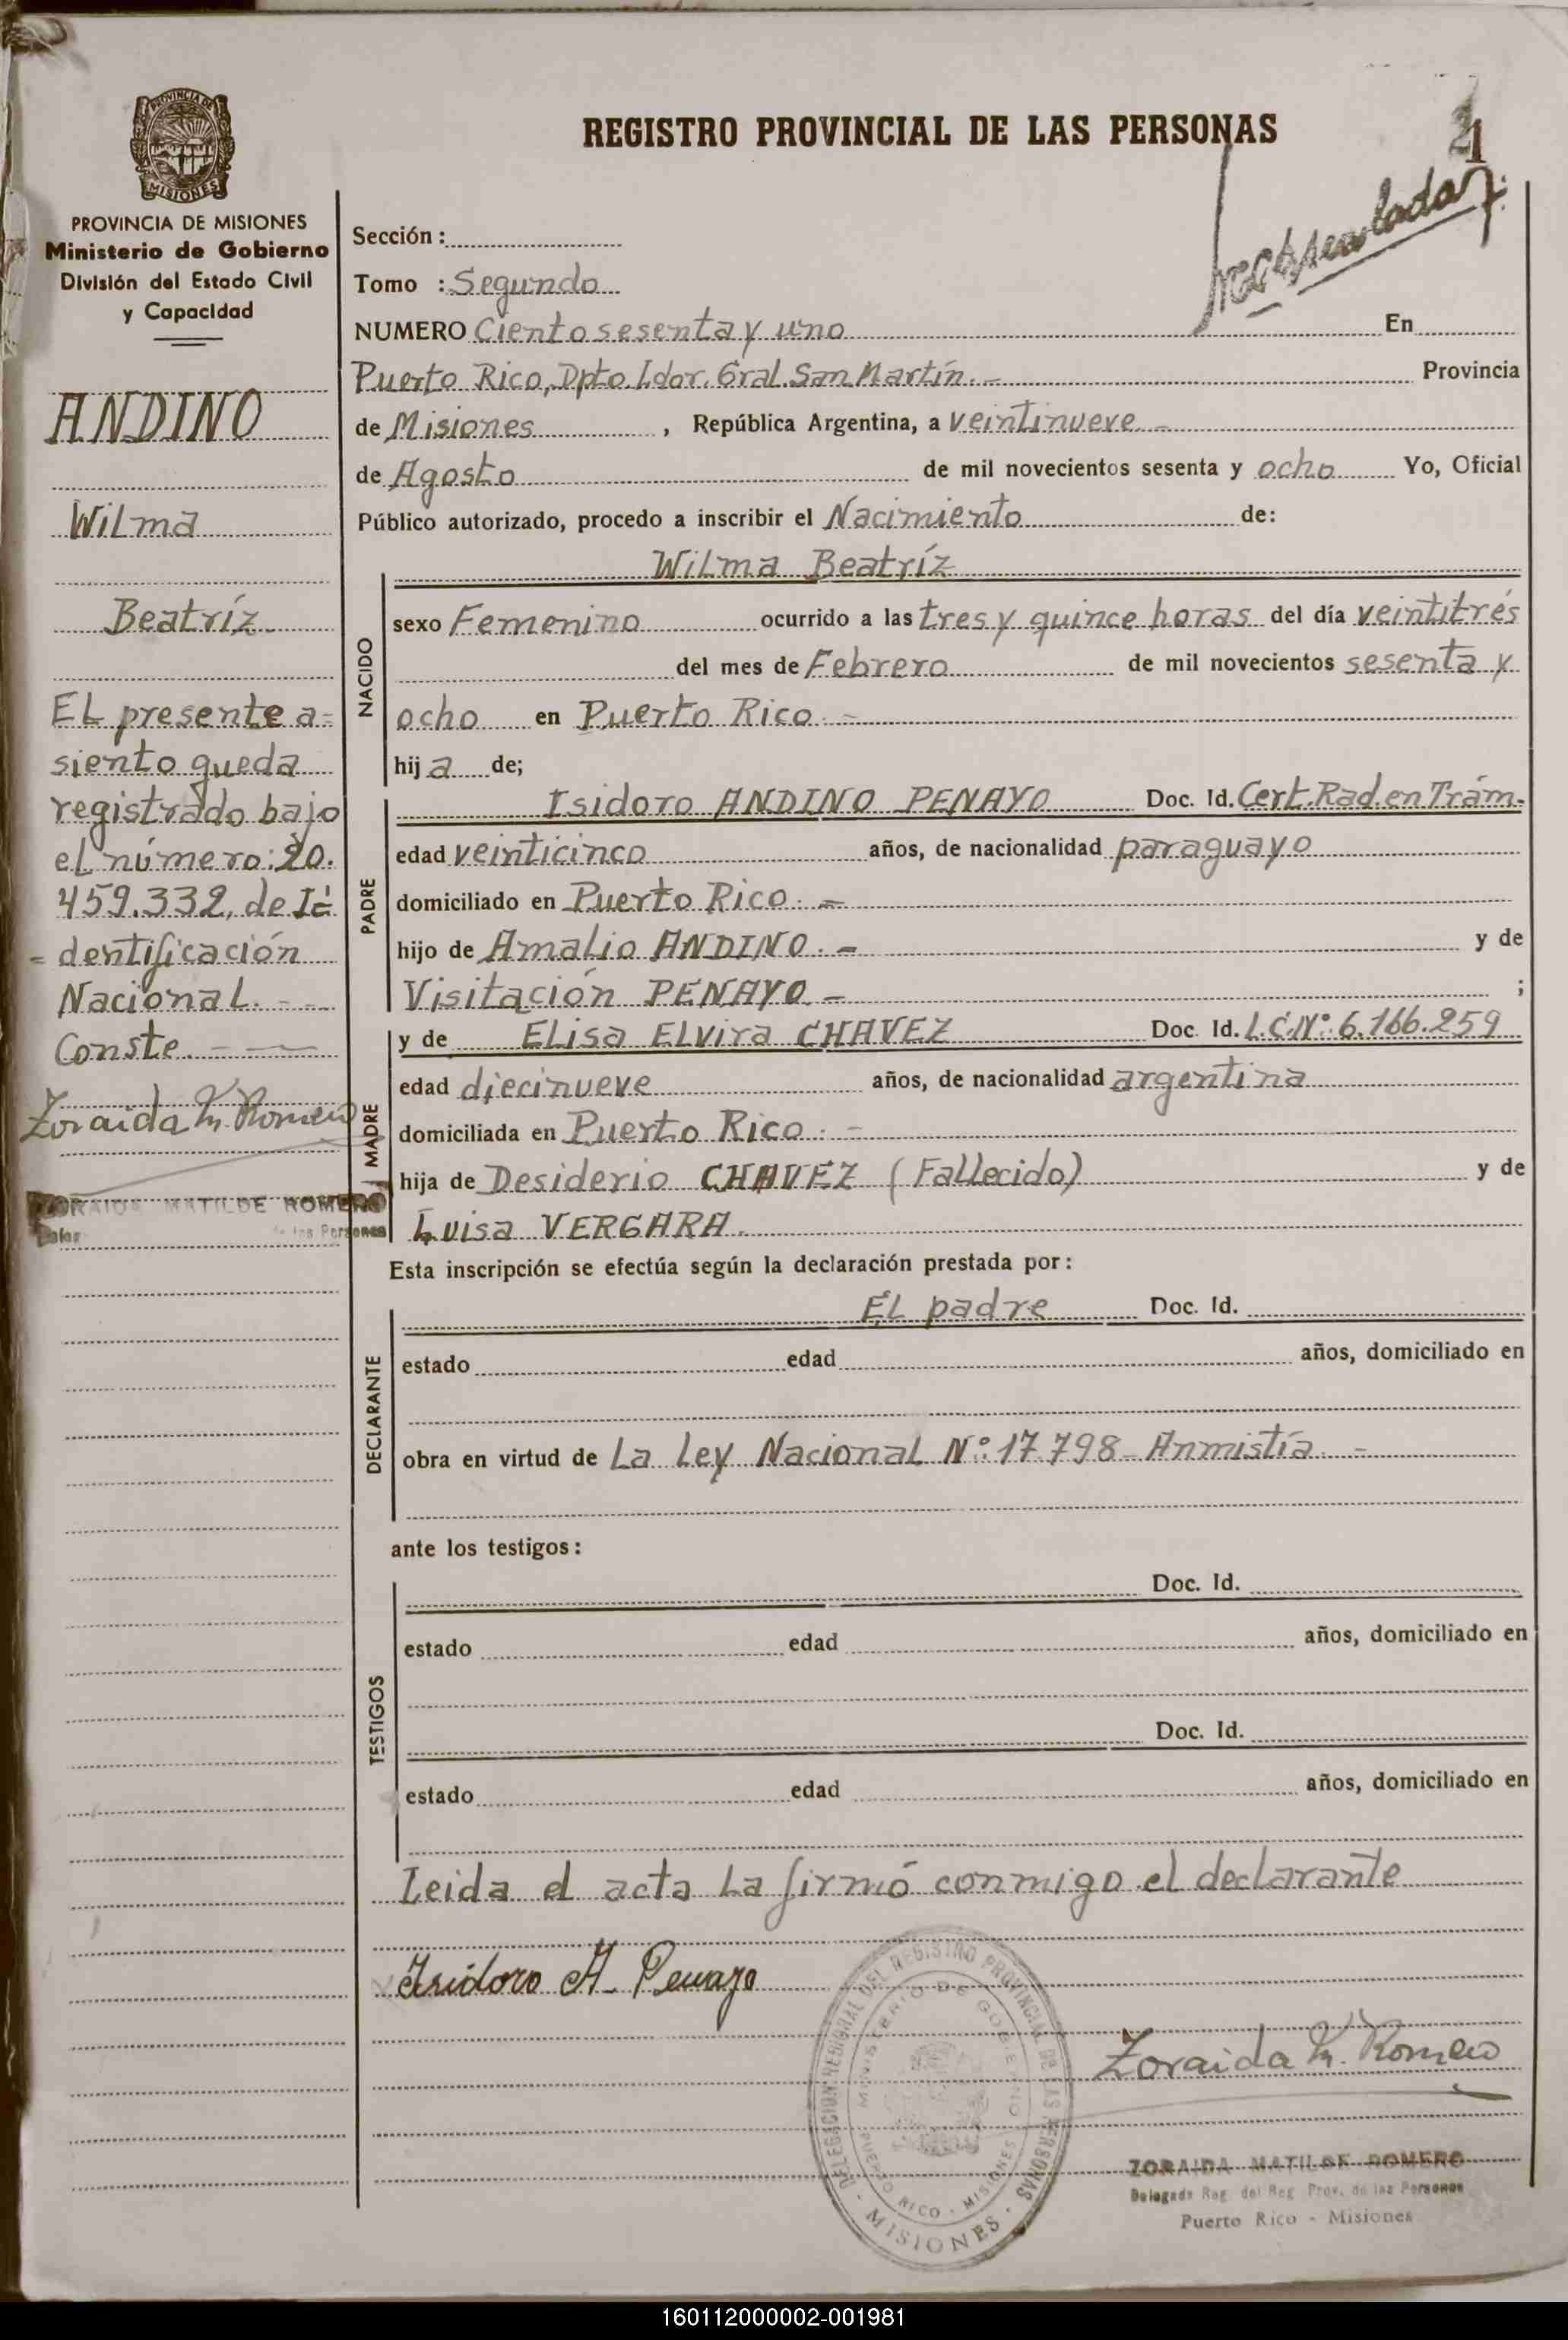 REGISTRO PROVINCIAL DE LAS PERSONAS
PROVINCIA DE MISIONES
MISIONES
PROVINCIA DE MISIONES
Ministerio de Gobierno
División del Estado Civil
y Capacidad
ANDINO
Wilma
Beatríz
EL presente a=
siento queda
registrado bajo
el número: 20.
459.332, de I=
= dentificación
Nacional. - -
Conste. - —
Zoraida M. Romero
ZORAIDA MATILDE ROMERO
de las Personas
Sección :
Tomo : Segundo
NUMERO Ciento sesenta y uno En
Puerto Rico, Dpto. Ldor. Gral. San Martín. - Provincia
de Misiones , República Argentina, a veintinueve -
de Agosto de mil novecientos sesenta y ocho Yo, Oficial
Público autorizado, procedo a inscribir el Nacimiento de:
Wilma Beatríz
NACIDO
sexo Femenino ocurrido a las tres y quince horas del día veintitrés
del mes de Febrero de mil novecientos sesenta y
ocho en Puerto Rico. -
hij a de;
PADRE
Isidoro ANDINO PENAYO Doc. Id. Cert. Rad. en Trám.
edad veinticinco años, de nacionalidad paraguayo
domiciliado en Puerto Rico. -
hijo de Amalio ANDINO. - y de
Visitación PENAYO. - ;
MADRE
y de ELisa ELvira CHAVEZ Doc. Id. L.C.Nº: 6.166.259
edad diecinueve años, de nacionalidad argentina
domiciliada en Puerto Rico. -
hija de Desiderio CHAVEZ (Fallecido) y de
Luisa VERGARA.
Esta inscripción se efectúa según la declaración prestada por :
DECLARANTE
EL padre Doc. Id.
estado edad años, domiciliado en
obra en virtud de La Ley Nacional Nº: 17.798- Anmistía. -
ante los testigos :
TESTIGOS
Doc. Id.
estado edad años, domiciliado en
Doc. Id.
estado edad años, domiciliado en
Leida el acta La firmó conmigo el declarante
Isidoro A. Penayo
DELEGACION REGIONAL DEL REGISTRO PROVINCIAL DE LAS PERSONAS
MINISTERIO DE GOBIERNO
PUERTO RICO - MISIONES
- MISIONES -
Zoraida M. Romero
ZORAIDA MATILDE ROMERO
Delegada Reg. del Reg. Prov. de las Personas
Puerto Rico - Misiones
160112000002-001981